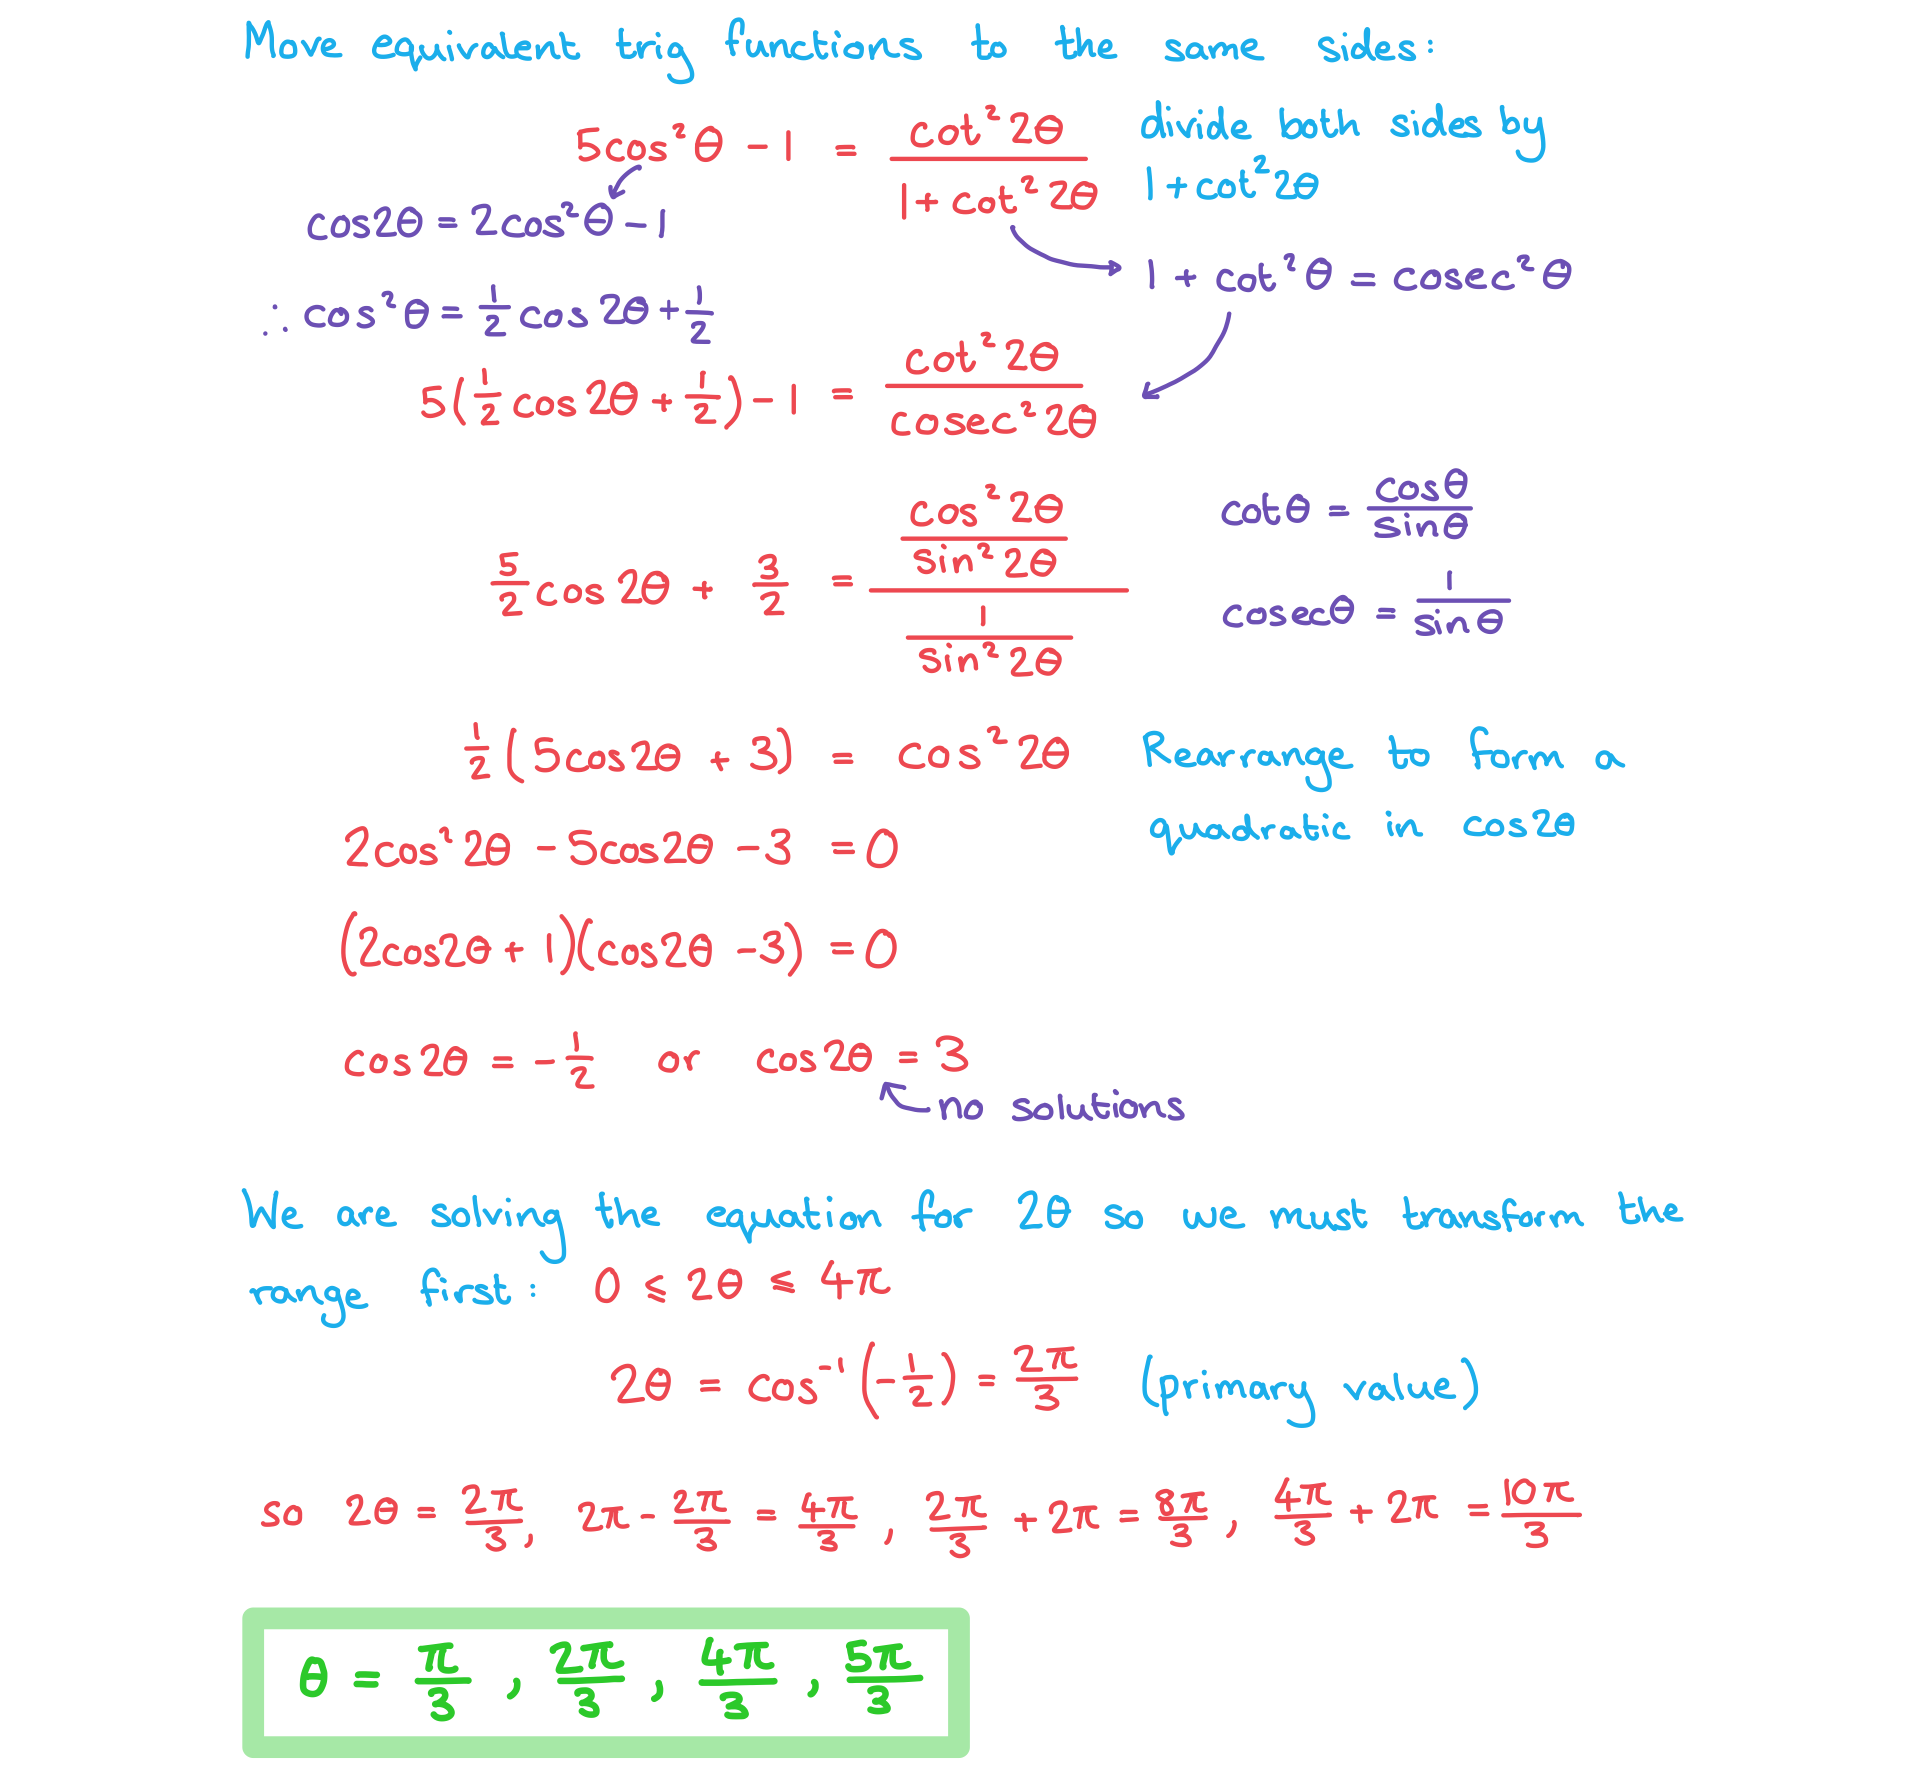 Move equivalent trig functions to the same sides:
5cos²θ - 1 = cot²2θ / 1 + cot²2θ divide both sides by
1 + cot²2θ
cos2θ = 2cos²θ - 1
1 + cot²θ = cosec²θ
∴ cos²θ = 1/2 cos 2θ + 1/2
5(1/2 cos 2θ + 1/2) - 1 = cot²2θ / cosec²2θ
cotθ = cosθ / sinθ
5/2 cos 2θ + 3/2 = (cos²2θ / sin²2θ) / (1 / sin²2θ)
cosecθ = 1 / sinθ
1/2 (5cos2θ + 3) = cos²2θ Rearrange to form a
quadratic in cos2θ
2cos²2θ - 5cos2θ - 3 = 0
(2cos2θ + 1)(cos2θ - 3) = 0
cos2θ = -1/2 or cos2θ = 3
no solutions
We are solving the equation for 2θ so we must transform the
range first: 0 ⩽ 2θ ⩽ 4π
2θ = cos⁻¹(-1/2) = 2π/3 (primary value)
so 2θ = 2π/3, 2π - 2π/3 = 4π/3, 2π/3 + 2π = 8π/3, 4π/3 + 2π = 10π/3
θ = π/3, 2π/3, 4π/3, 5π/3